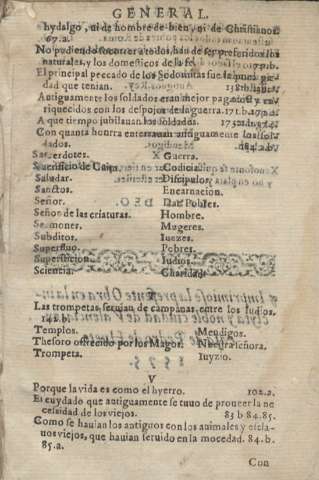 GENERAL.
hydalgo, ni de hombre de bien, ni de Christiano.
67.a.
No pudiendo socorrer a todos, han de ser preferidos los
naturales, y los domesticos de la fe.
El principal peccado de los Sodomitas fue
Antiguamente los soldados eran mejor pagados y en
riquecidos con los despojos de la guerra. 171.b.
A que tiempo jubilauan los soldados.
Con quanta honrra enterrauan antiguamente los sol
dados.
Sacerdotes. X Guerra.
Sacrificio de Codicia.
Saludar. Discipulos.
Sanctos. Encarnacion.
Señor. Pobles.
Señor de las criaturas. Hombre.
Sermones. Mugeres.
Subditos. Iuezes.
Superfluo. Pobres.
Supersticion. Iudios.
Sciencia. Charidad.
Las trompetas seruian de campanas, entre los Iudios.
145.b.
Templos. Mendigos.
Thesoro offrecido por los Magos. Nuestra señora.
Trompeta. Iuyzio.
V
Porque la vida es como el hyerro. 102.a.
El cuydado que antiguamente se tuuo de proueer la ne
cessidad de los viejos. 83 b 84.85.
Como se hauian los antiguos con los animales y escla-
uos viejos, que hauian seruido en la mocedad. 84.b.
85.a.
Con